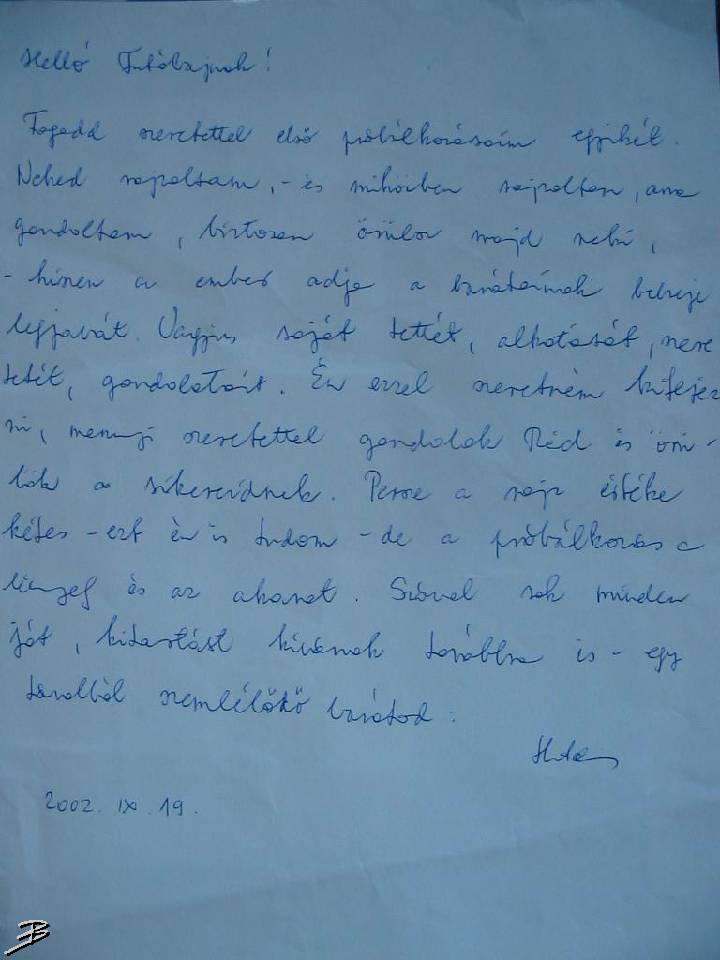 Helló Futóbajnok!
Fogadd szeretettel első próbálkozásaim egyikét.
Neked rajzoltam, - és miközben rajzoltam, arra
gondoltam, biztosan örülsz majd neki,
- hiszen az ember adja a barátainak
legjavát. Vagyis saját tettét, alkotását, szere
tetét, gondolatait. Én ezzel szeretném kifejez
ni, mennyi szeretettel gondolok Rád és örü-
lök a sikereidnek. Persze a rajz értéke
kétes - ezt én is tudom - de a próbálkozás a
lényeg és az akarat. Szóval sok minden
jót, kitartást kívánok továbbra is - egy
távolból szemlélődő barátod:
2002. IX. 19.